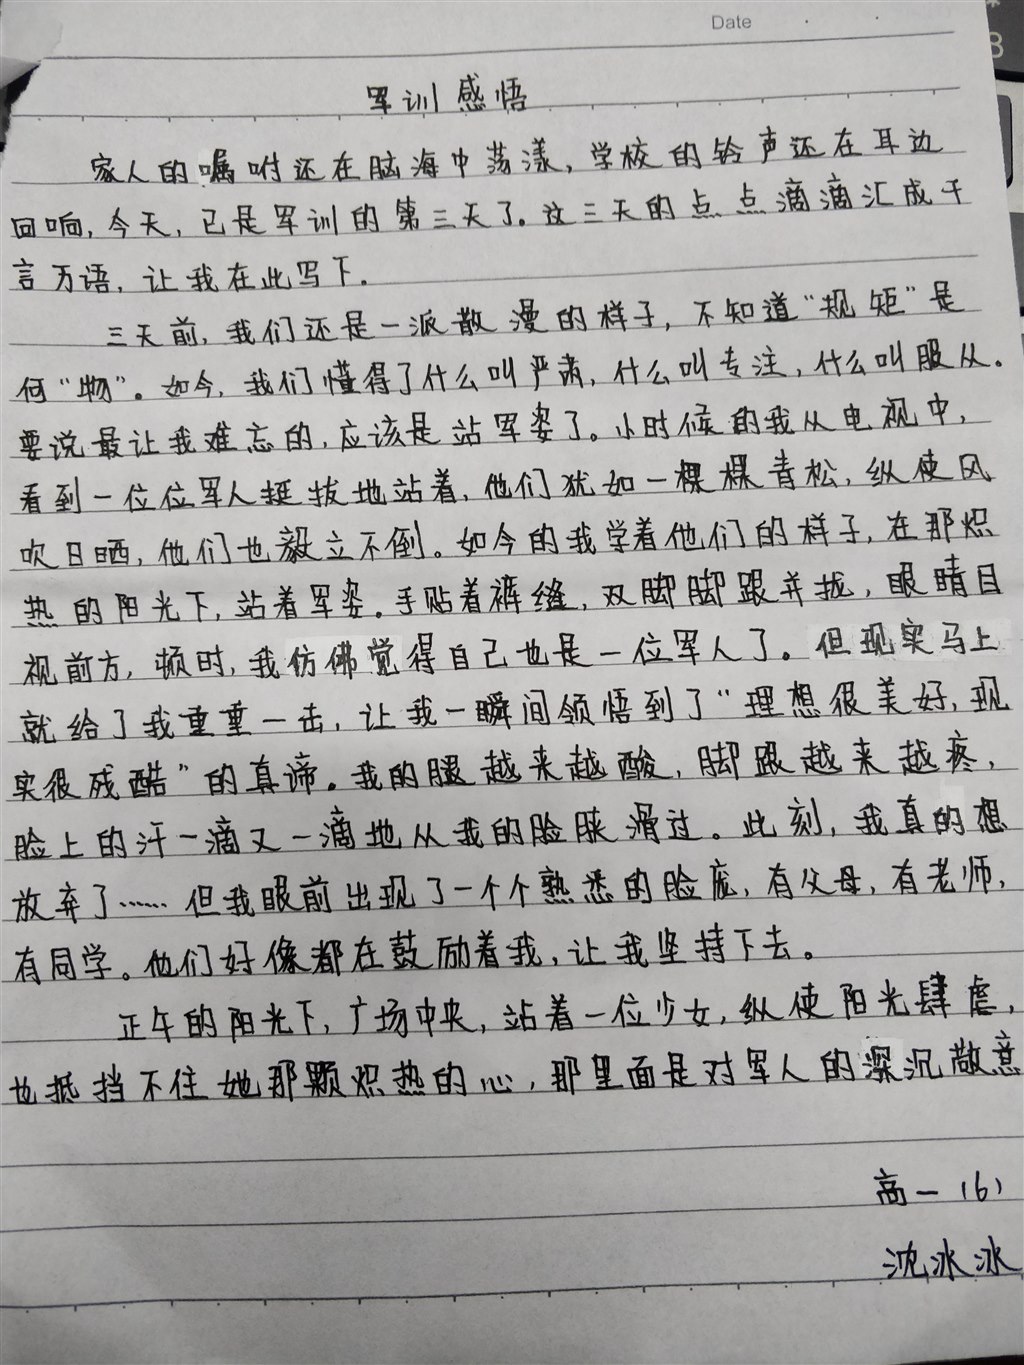 Date
8
军训感悟
家人的嘱咐还在脑海中荡漾，学校的铃声还在耳边
回响，今天，已是军训的第三天了。这三天的点点滴滴汇成千
言万语，让我在此写下。
三天前，我们还是一派散漫的样子，不知道“规矩”是
何“物”。如今，我们懂得了什么叫严肃，什么叫专注，什么叫服从。
要说最让我难忘的，应该是站军姿了。小时候的我从电视中，
看到一位位军人挺拔地站着，他们犹如一棵棵青松，纵使风
吹日晒，他们也毅立不倒。如今的我学着他们的样子，在那炽
热的阳光下，站着军姿。手贴着裤缝，双脚脚跟并拢，眼睛目
视前方，顿时，我仿佛觉得自己也是一位军人了。但现实马上
就给了我重重一击，让我一瞬间领悟到了“理想很美好，现
实很残酷”的真谛。我的腿越来越酸，脚跟越来越疼，
脸上的汗一滴又一滴地从我的脸颊滑过。此刻，我真的想
放弃了……但我眼前出现了一个个熟悉的脸庞，有父母，有老师，
有同学。他们好像都在鼓励着我，让我坚持下去。
正午的阳光下，广场中央，站着一位少女，纵使阳光肆虐，
也抵挡不住她那颗炽热的心，那里面是对军人的深沉敬意
高一（6）
沈冰冰